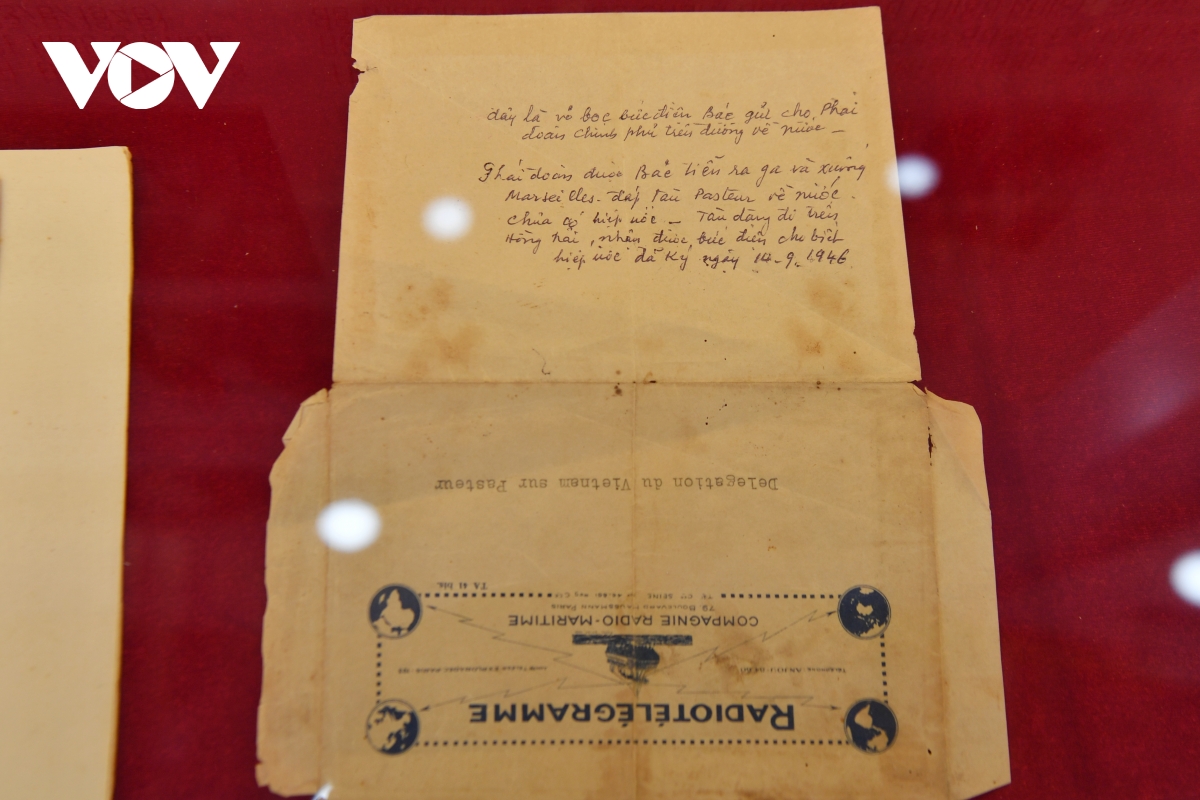 VOV
đây là vỏ bọc bức điện Bác gửi cho Phái
đoàn chính phủ trên đường về nước –
Phái đoàn được Bác tiễn ra ga và xuống
Marseilles - đáp tàu Pasteur về nước.
Chưa có hiệp ước – Tàu đang đi trên
Hồng hải, nhận được bức điện cho biết
hiệp ước đã ký ngày 14-9-1946
Delegation du Vietnam sur Pasteur
RADIOTÉLÉGRAMME
COMPAGNIE RADIO-MARITIME
79 BOULEVARD HAUSSMANN PARIS
TA 41 bis.